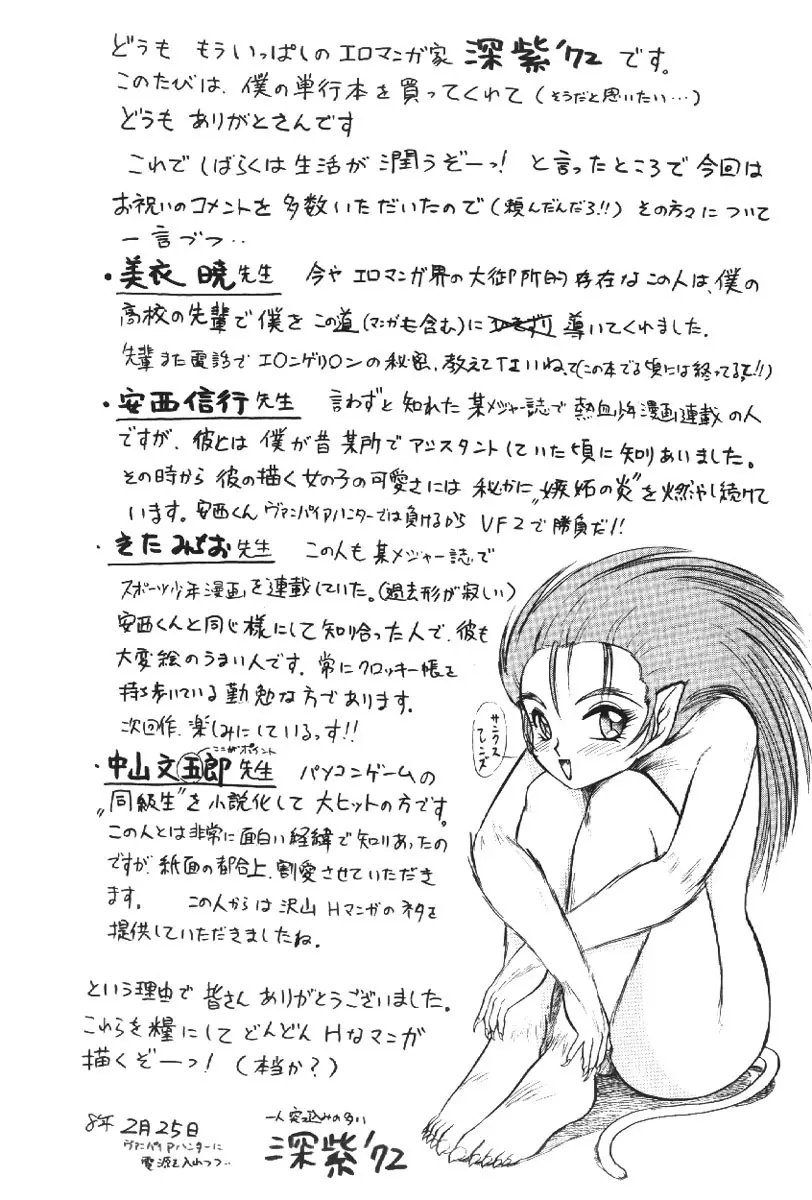 どうも もういっぱしのエロマンガ家 深紫'72 です。
このたびは、僕の単行本を買ってくれて(そうだと思いたい…)
どうも ありがとさんです
これでしばらくは生活が潤うぞーっ! と言ったところで今回は
お祝いのコメントを多数いただいたので(頼んだんだろ!!)その方々について
一言づつ‥
・美衣 暁先生 今やエロマンガ界の大御所的存在なこの人は、僕の
高校の先輩で僕をこの道(マンガも含む)に 導いてくれました。
先輩また電話でエ〇ンゲリ〇ンの秘密、教えて下さいね、(この本でる頃には終ってるって!!)
・安西信行先生 言わずと知れた某メジャー誌で熱血少年漫画連載の人
ですが、彼とは僕が昔某所でアシスタントしていた頃に知りあいました。
その時から彼の描く女の子の可愛さには秘かに“嫉妬の炎”を燃やし続けて
います。安西くんヴァンパイアハンターでは負けるからVF2で勝負だ!!
・きたみちお先生 この人も某メジャー誌で
スポーツ少年漫画を連載していた。(過去形が寂しい)
安西くんと同じ様にして知り合った人で、彼も
大変絵のうまい人です。常にクロッキー帳を
持ち歩いている勤勉な方であります。
次回作、楽しみにしているっす!!
ここがポイント
・中山文五郎先生 パソコンゲームの
“同級生”を小説化して大ヒットの方です。
この人とは非常に面白い経緯で知りあったの
ですが、紙面の都合上、割愛させていただき
ます。 この人からは沢山Hマンガのネタを
提供していただきましたね。
サンクス
フレンズ
という理由で皆さんありがとうございました。
これらを糧にしてどんどんHなマンガ
描くぞーっ!(本当か?)
8年 2月25日
ヴァンパイアハンターに
電源を入れつつ‥
一人突っ込みの多い
深紫'72